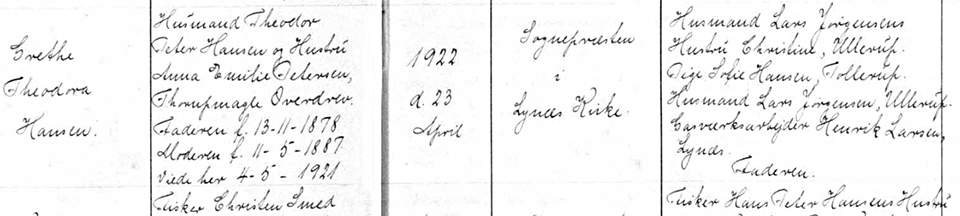 Grethe
Theodora
Hansen.
Husmand Theodor
Peter Hansen og Hustru
Anna Emilie Petersen,
Thorupmagle Overdrev.
Faderen f. 13-11-1878
Moderen f. 11-5-1887
Viede her 4-5-1921
Fisker Christen Smed
1922
d. 23
April
Sognepræsten
i
Lynæs Kirke.
Husmand Lars Jørgensens
Hustru Christine, Ullerup.
Pige Sofie Hansen, Tollerup.
Husmand Lars Jørgensen, Ullerup.
Gasværksarbejder Henrik Larsen,
Lynæs.
Faderen.
Fisker Hans Peter Hansens Hustru